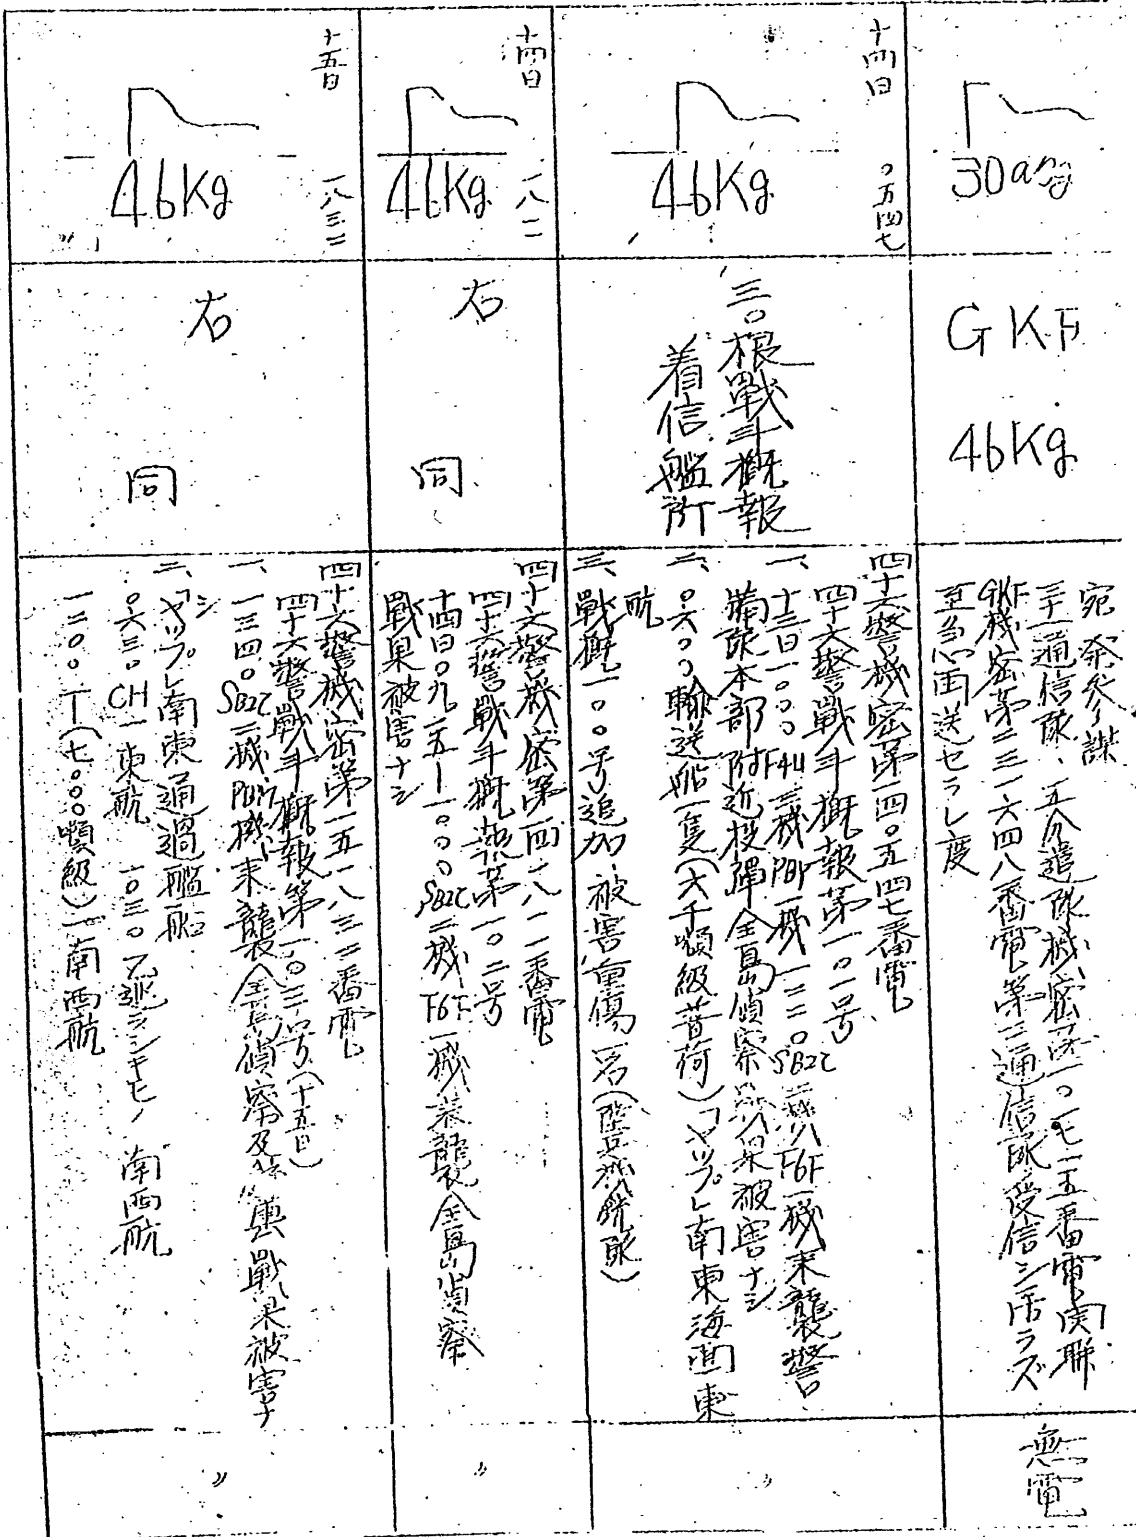 30
GKF
46Kg
宛 参謀
三十一通信隊、
GKF機密第二三一六四八番電第三通信隊受信シ居ラズ
至急再送セラレ度
無電
十四日
〇五四七
46Kg
三〇根戦斗概報
着信艦所
四十六警機密第一四〇五四七番電
四十六警戦斗概報第一〇一号
一、十三日一〇〇〇F4U三機PBY一機一三二〇SB2C二機F6F一機来襲警
備隊本部附近投弾全島偵察戦果被害ナシ
二、〇六〇〇輸送船一隻(六千噸級 荷)「ヤップ」南東海面東
航
三、戦概一〇〇号追加、被害重傷一名
〃
十四日
一八一一
46Kg
右
同
四十六警機密第一四一八一一番電
四十六警戦斗概報第一〇二号
十四日〇九一五―一〇〇〇SB2C二機F6F一機来襲全島偵察
戦果被害ナシ
〃
十五日
一八三二
46Kg
右
同
四十六警機密第一五一八三二番電
四十六警戦斗概報第一〇三号(十五日)
一、一三四〇SB2C二機PBM一機来襲全島偵察及 戦果被害ナ
シ
二、「ヤップ」南東通過艦船
〇六三〇CH一東航 一〇三〇 南西航
一二〇〇T(七〇〇〇噸級)一南西航
〃